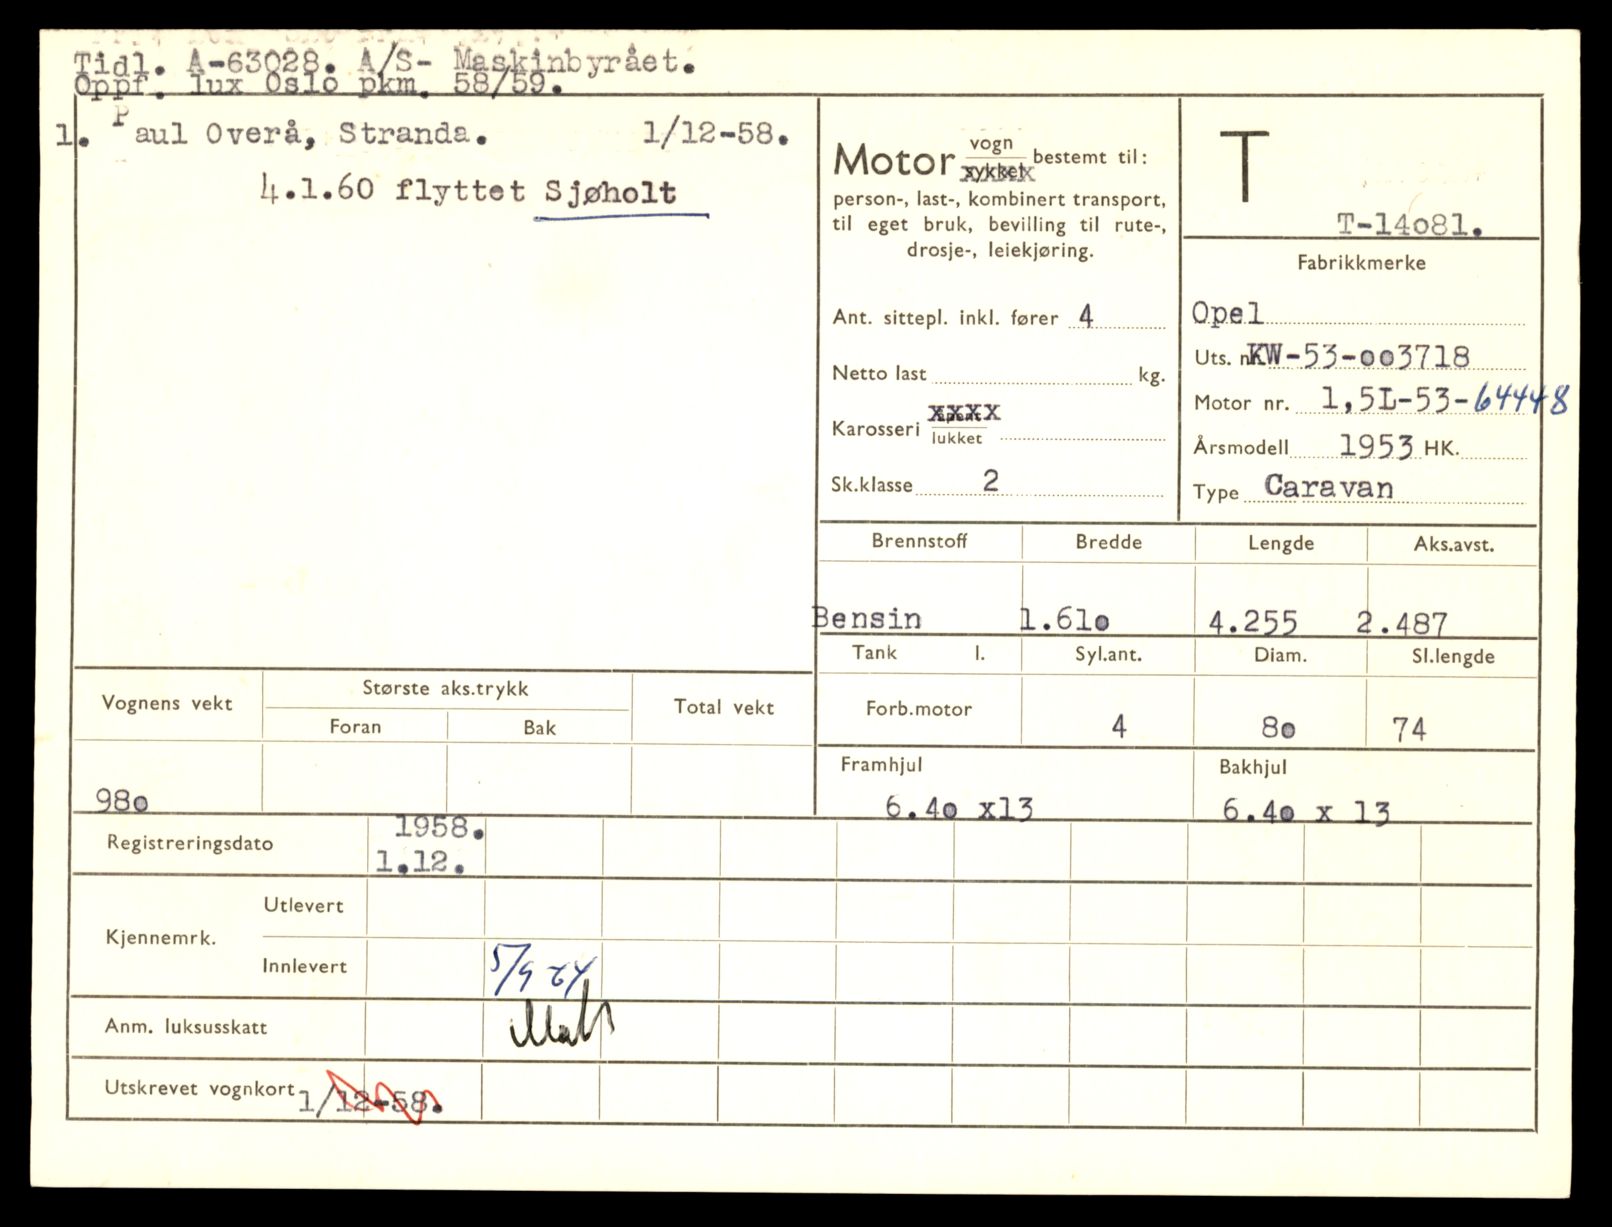 Tidl. A-63028. A/S- Maskinbyrået.
Oppf. lux Oslo pkm. 58/59.
1. Paul Overå, Stranda. 1/12-58.
4.1.60 flyttet Sjøholt
Motor vogn
sykkel bestemt til:
person-, last-, kombinert transport,
til eget bruk, bevilling til rute-,
drosje-, leiekjøring.
Ant. sittepl. inkl. fører 4
Netto last kg.
Karosseri xxxx
lukket
Sk.klasse 2
T
T-14o81.
Fabrikkmerke
Opel
Uts. nr. KW-53-oo3718
Motor nr. 1,5L-53-64448
Årsmodell 1953 HK.
Type Caravan
Brennstoff Bredde Lengde Aks.avst.
Bensin 1.61o 4.255 2.487
Tank l. Syl.ant. Diam. Sl.lengde
Forb.motor 4 8o 74
Framhjul Bakhjul
6.4o x13 6.4o x 13
Vognens vekt Største aks.trykk Total vekt
Foran Bak
98o
Registreringsdato 1958.
1.12.
Kjennemrk. Utlevert
Innlevert 5/9 64
Anm. luksusskatt
Utskrevet vognkort 1/12-58.